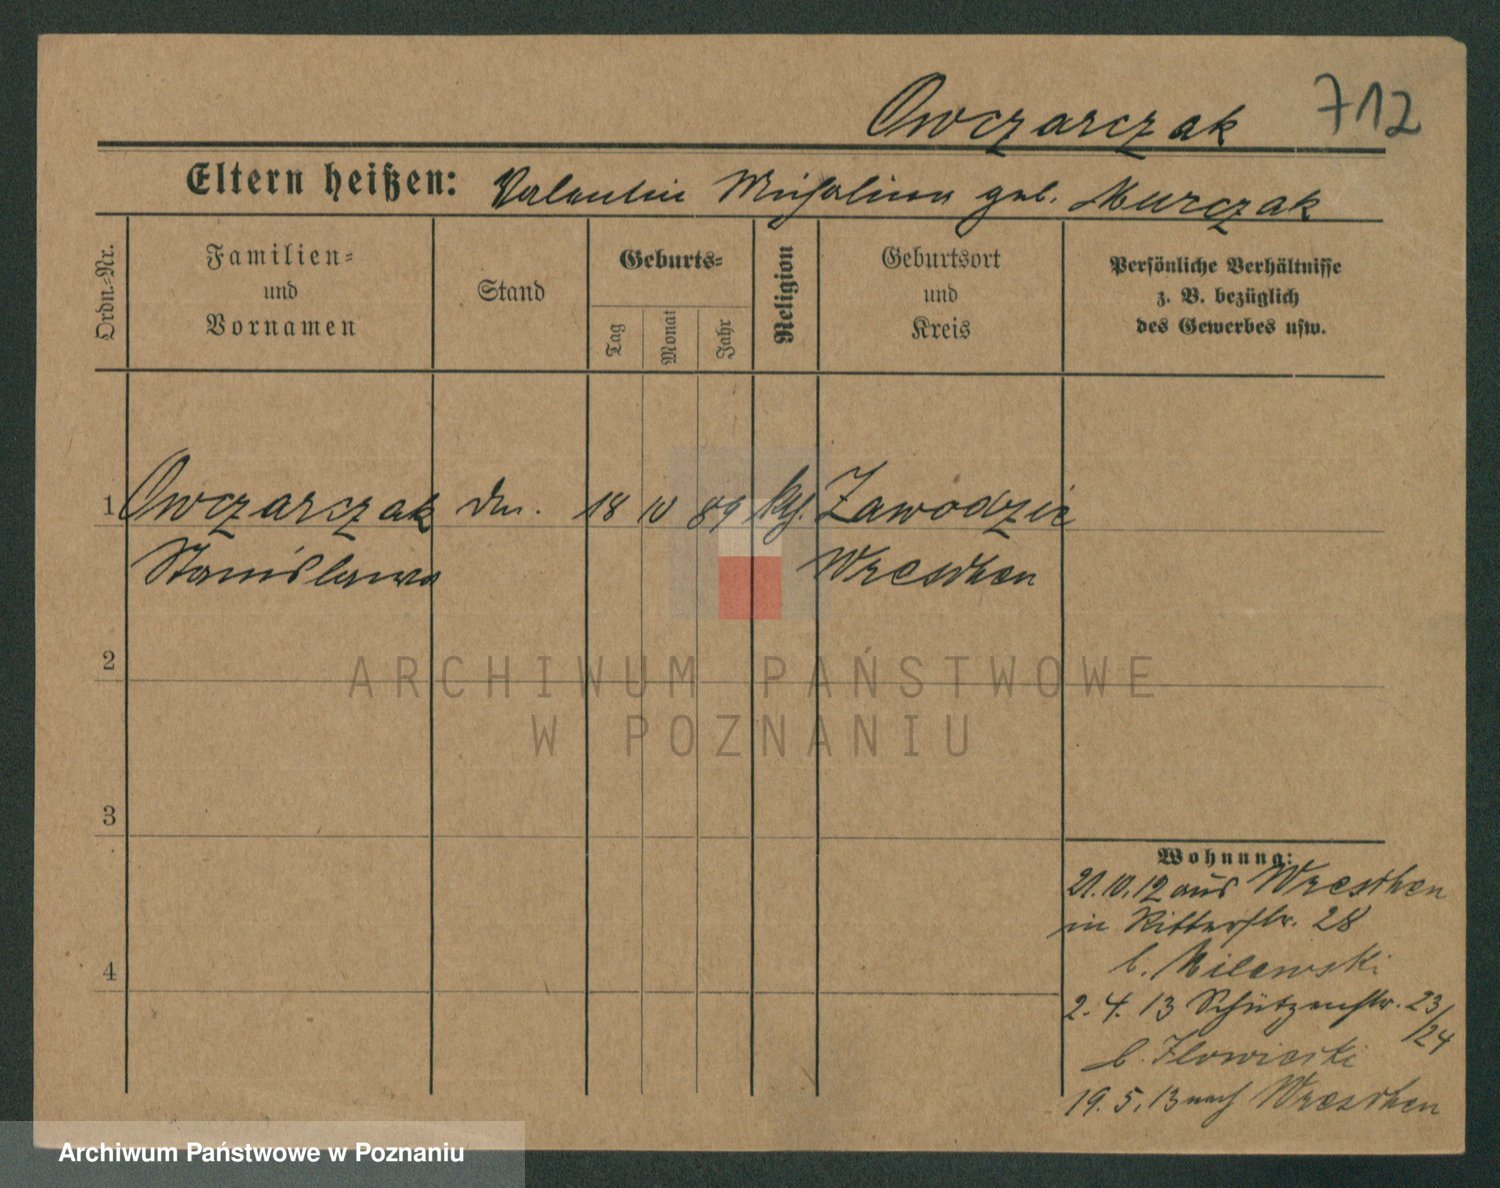 Owczarczak 712
Eltern heißen: Valentin Michalina geb. Murczak
Ordn.-Nr.
Familien-
und
Vornamen
Stand
Geburts-
Tag
Monat
Jahr
Religion
Geburtsort
und
Kreis
Persönliche Verhältnisse
z. B. bezüglich
des Gewerbes usw.
1 Owczarczak 18 10 89 kth. Zawodzie
Stanislawa Wreschen
2
ARCHIWUM PAŃSTWOWE
W POZNANIU
3
Wohnung:
21.10.12 aus Wreschen
in Ritterstr. 28
b. Milewski
4
2. 4. 13 Schützenstr. 23
/24
b. Ilowiecki
19. 5. 13 nach Wreschen
Archiwum Państwowe w Poznaniu